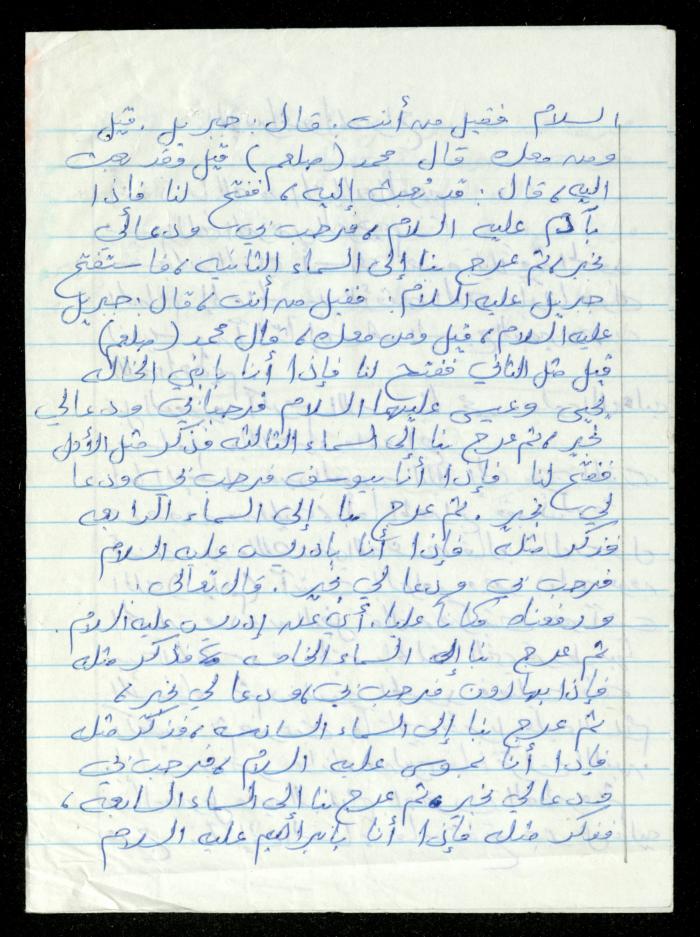 السلام فقيل من أنت. قال: جبريل. قيل
ومن معك قال محمد (صلعم) قيل وقد بعث
إليه، قال: قد بُعث إليه، ففتح لنا فإذا
بآدم عليه السلام، فرحب بي ودعا لي
بخير، ثم عرج بنا إلى السماء الثانية، فاستفتح
جبريل عليه السلام: فقيل من أنت، قال: جبريل
عليه السلام، قيل ومن معك، قال محمد (صلعم)
قيل مثل الثاني ففتح لنا فإذا أنا بابني الخالة
يحيى وعيسى عليهما السلام فرحبا بي ودعا لي
بخير، ثم عرج بنا إلى السماء الثالثة فذكر مثل الأول
ففتح لنا فإذا أنا بيوسف فرحب بي ودعا
لي بخير. ثم عرج بنا إلى السماء الرابعة
فذكر مثله فإذا أنا بإدريس عليه السلام
فرحب بي ودعا لي بخير. قال تعالى:
ورفعناه مكانا عليا. أي عند إدريس عليه السلام.
ثم عرج بنا إلى السماء الخامسة فذكر مثله
فإذا بهارون فرحب بي، ودعا لي بخير،
ثم عرج بنا إلى السماء السادسة، فذكر مثله
فإذا أنا بموسى عليه السلام، فرحب بي
ودعا لي بخير، ثم عرج بنا إلى السماء السابعة،
فذكر مثله فإذا أنا بإبراهيم عليه السلام